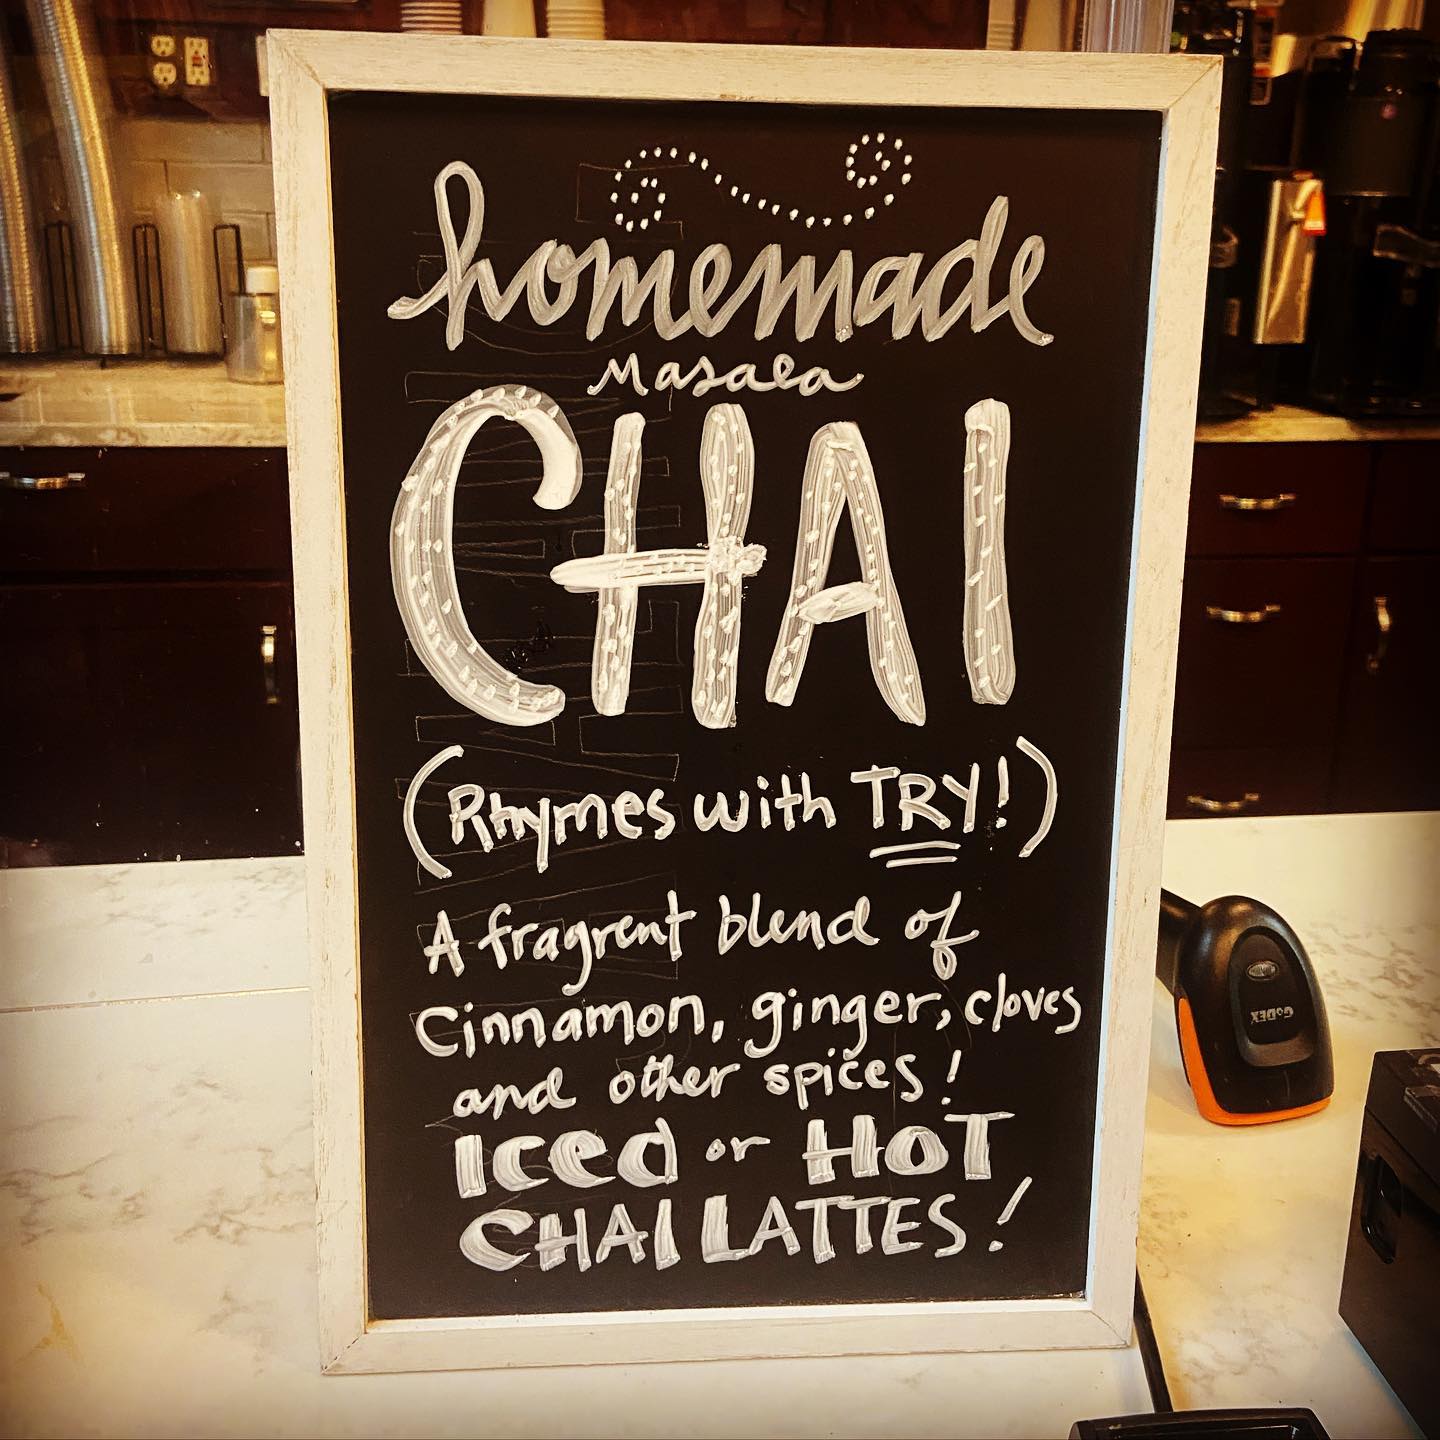 homemade
Masala
CHAI
(Rhymes with TRY!)
A fragrent blend of
Cinnamon, ginger, cloves
and other spices!
Iced or HOT
CHAI LATTES!
GoDEX